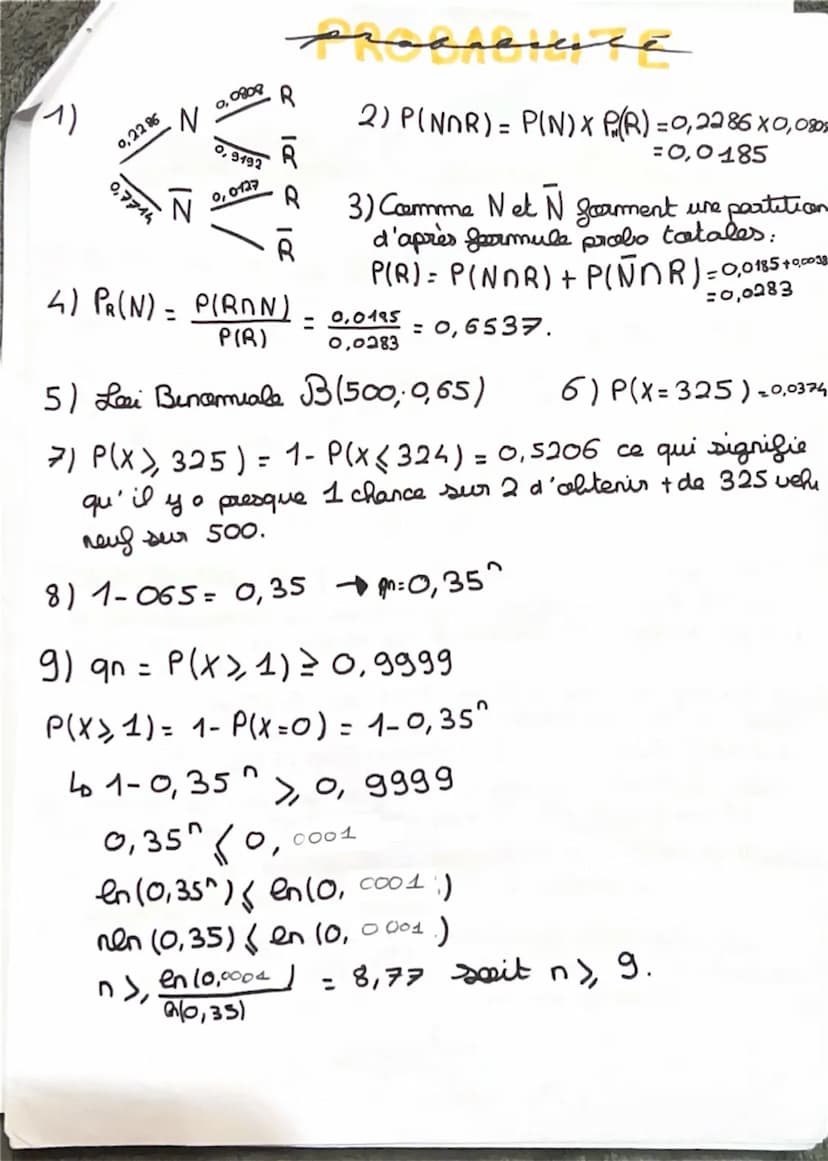 PROBABILITÉ
1) 0,2286 N 0,0809 R
0,9192 R̄
0,7714 N̄ 0,0127 R
R̄
2) P(N∩R) = P(N) × P_N(R) = 0,2286 × 0,0809
= 0,0185
3) Comme N et N̄ forment une partition
d'après formule probo totales :
P(R) = P(N∩R) + P(N̄∩R) = 0,0185 + 0,0098
= 0,0283
4) P_R(N) = P(R∩N) / P(R) = 0,0185 / 0,0283 = 0,6537.
5) Loi Binomiale B(500; 0,65)
6) P(X = 325) = 0,0374
7) P(X ⩾ 325) = 1 - P(X ⩽ 324) = 0,5206 ce qui signifie
qu'il y a presque 1 chance sur 2 d'obtenir + de 325 vehi
neuf sur 500.
8) 1 - 065 = 0,35 → qn = 0,35ⁿ
9) qn = P(X ⩾ 1) ≥ 0,9999
P(X ⩾ 1) = 1 - P(X = 0) = 1 - 0,35ⁿ
↳ 1 - 0,35ⁿ ⩾ 0,9999
0,35ⁿ ⩽ 0,0001
ln(0,35ⁿ) ⩽ ln(0,0001)
nln(0,35) ⩽ ln(0,0001)
n ⩾ ln(0,0001) / ln(0,35) = 8,77 soit n ⩾ 9.